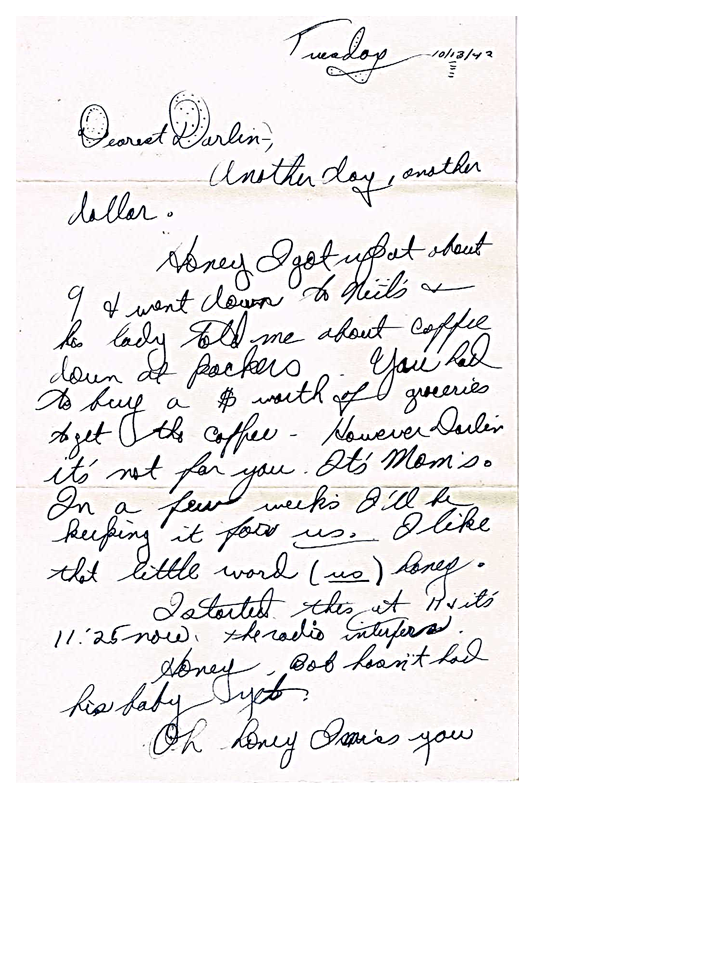 Tuesday 10/13/42
Dearest Darlin-,
Another day, another
dollar.
Honey I got up at about
9 & went down to Neil's &
his lady told me about coffee
down at Packers. You had
to buy a $ worth of groceries
to get the coffee - However Darlin
it's not for you. It's Mom's.
In a few weeks I'll be
keeping it for us. I like
that little word (us) honey.
I started this at 11 & it's
11:25 now. the radio interferes.
Honey, Bob hasn't had
his baby yet.
Oh honey I miss you